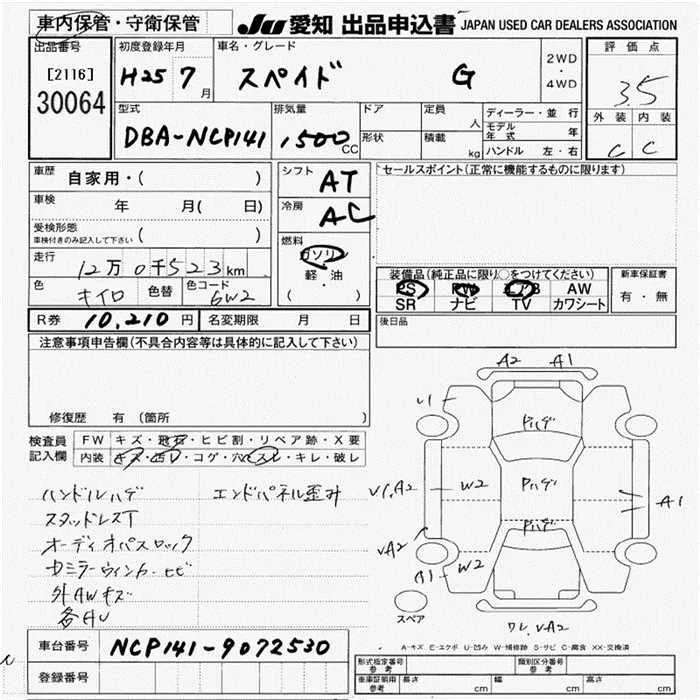 車内保管・守衛保管
JU 愛知 出品申込書 JAPAN USED CAR DEALERS ASSOCIATION
出品番号
[2116]
30064
初度登録年月
H25 7 月
車名・グレード
スペイド G
2WD
・
4WD
評価点
3.5
外装 内装
C C
型式
DBA-NCP141
排気量
1,500 CC
ドア
形状
定員
人
積載
kg
ディーラー・並行
モデル年式 年
ハンドル 左・右
車歴
自家用・( )
車検
年 月( 日)
受検形態
車検付きのみ記入して下さい ( )
走行
12万0千523km
色
キイロ
色替
色コード
6W2
シフト
AT
冷房
AC
燃料
ガソリン
・
軽・油
( )
セールスポイント(正常に機能するものに限ります)
装備品(純正品に限り○をつけてください)
PS PW エアB AW
SR ナビ TV カワシート
新車保証書
有・無
R券 10,210円
名変期限 月 日
後日品
注意事項申告欄(不具合内容等は具体的に記入して下さい)
修復歴 有(箇所 )
検査員
記入欄
FW キズ・飛石・ヒビ割・リペア跡・X要
内装 キズ・汚レ・コゲ・穴・スレ・キレ・破レ
ハンドルハゲ
エンドパネル歪み
スタッドレスT
オーディオパスロック
カミラーウインカーヒビ
外AWキズ
各AU
A2 A1
U1
ドハゲ
V1.A2 W2
Pハゲ
A1
Pハゲ
VA2
A1 W2
スペア
ワレ.VA2
A-キズ E-エクボ U-凹み W-補修跡 S-サビ C-腐食 XX-交換済
車台番号
NCP141-9072530
登録番号
形式指定番号
参考
類別区分番号
参考
車庫証明用
参考
長さ cm
幅 cm
高さ cm